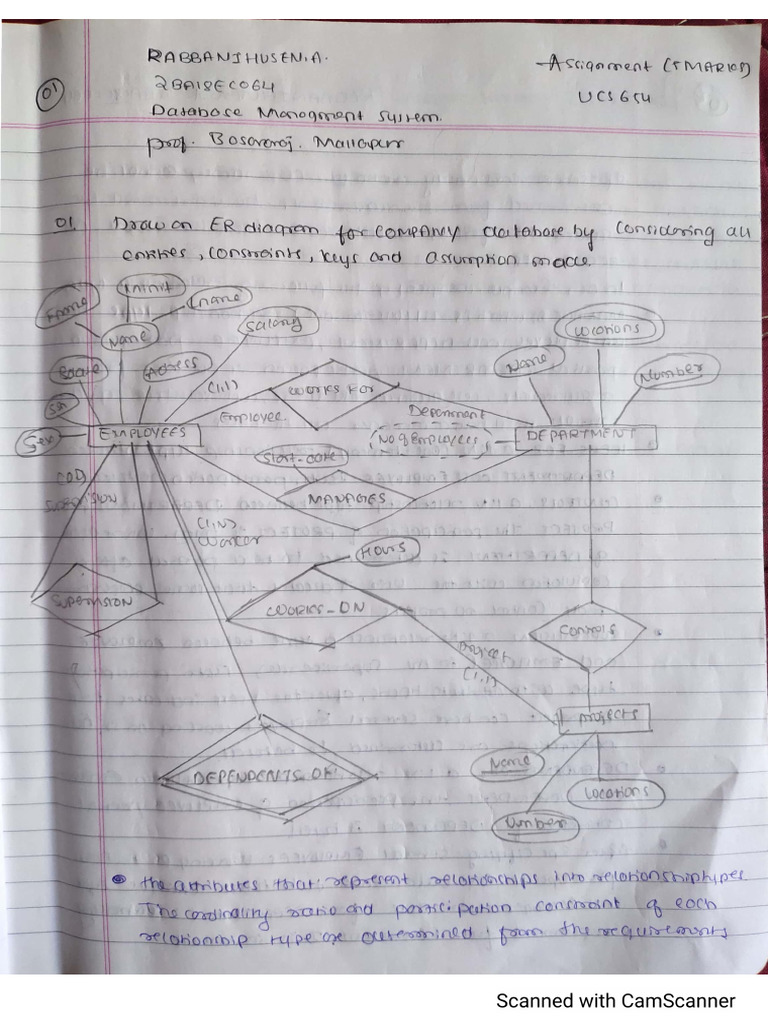 RABBANIHUSEN.A.
Assignment (5 MARKS)
01
2BA18EC064
UCS654
Database Managment System.
prof. Basavaraj. Mallapur
01. Draw an ER diagram for COMPANY database by Considering all
entities, constraints, keys and assumption made.
Fname
Lname
Name
Salary
Locations
Address
Name
Number
Bdate
(1,1)
WORKS FOR
Ssn
Employee
Department
Sex
EMPLOYEES
No of Employees
DEPARTMENT
Start-date
MANAGES
(1,N)
Worker
HOURS
SUPERVISION
WORKS-ON
CONTROLS
project
(1,1)
PROJECTS
DEPENDENTS-OF
Name
Locations
Number
the attributes that represent relationships into relationship types.
The cardinality ratio and participation constraint of each
relationship type are determined from the requirements
Scanned with CamScanner